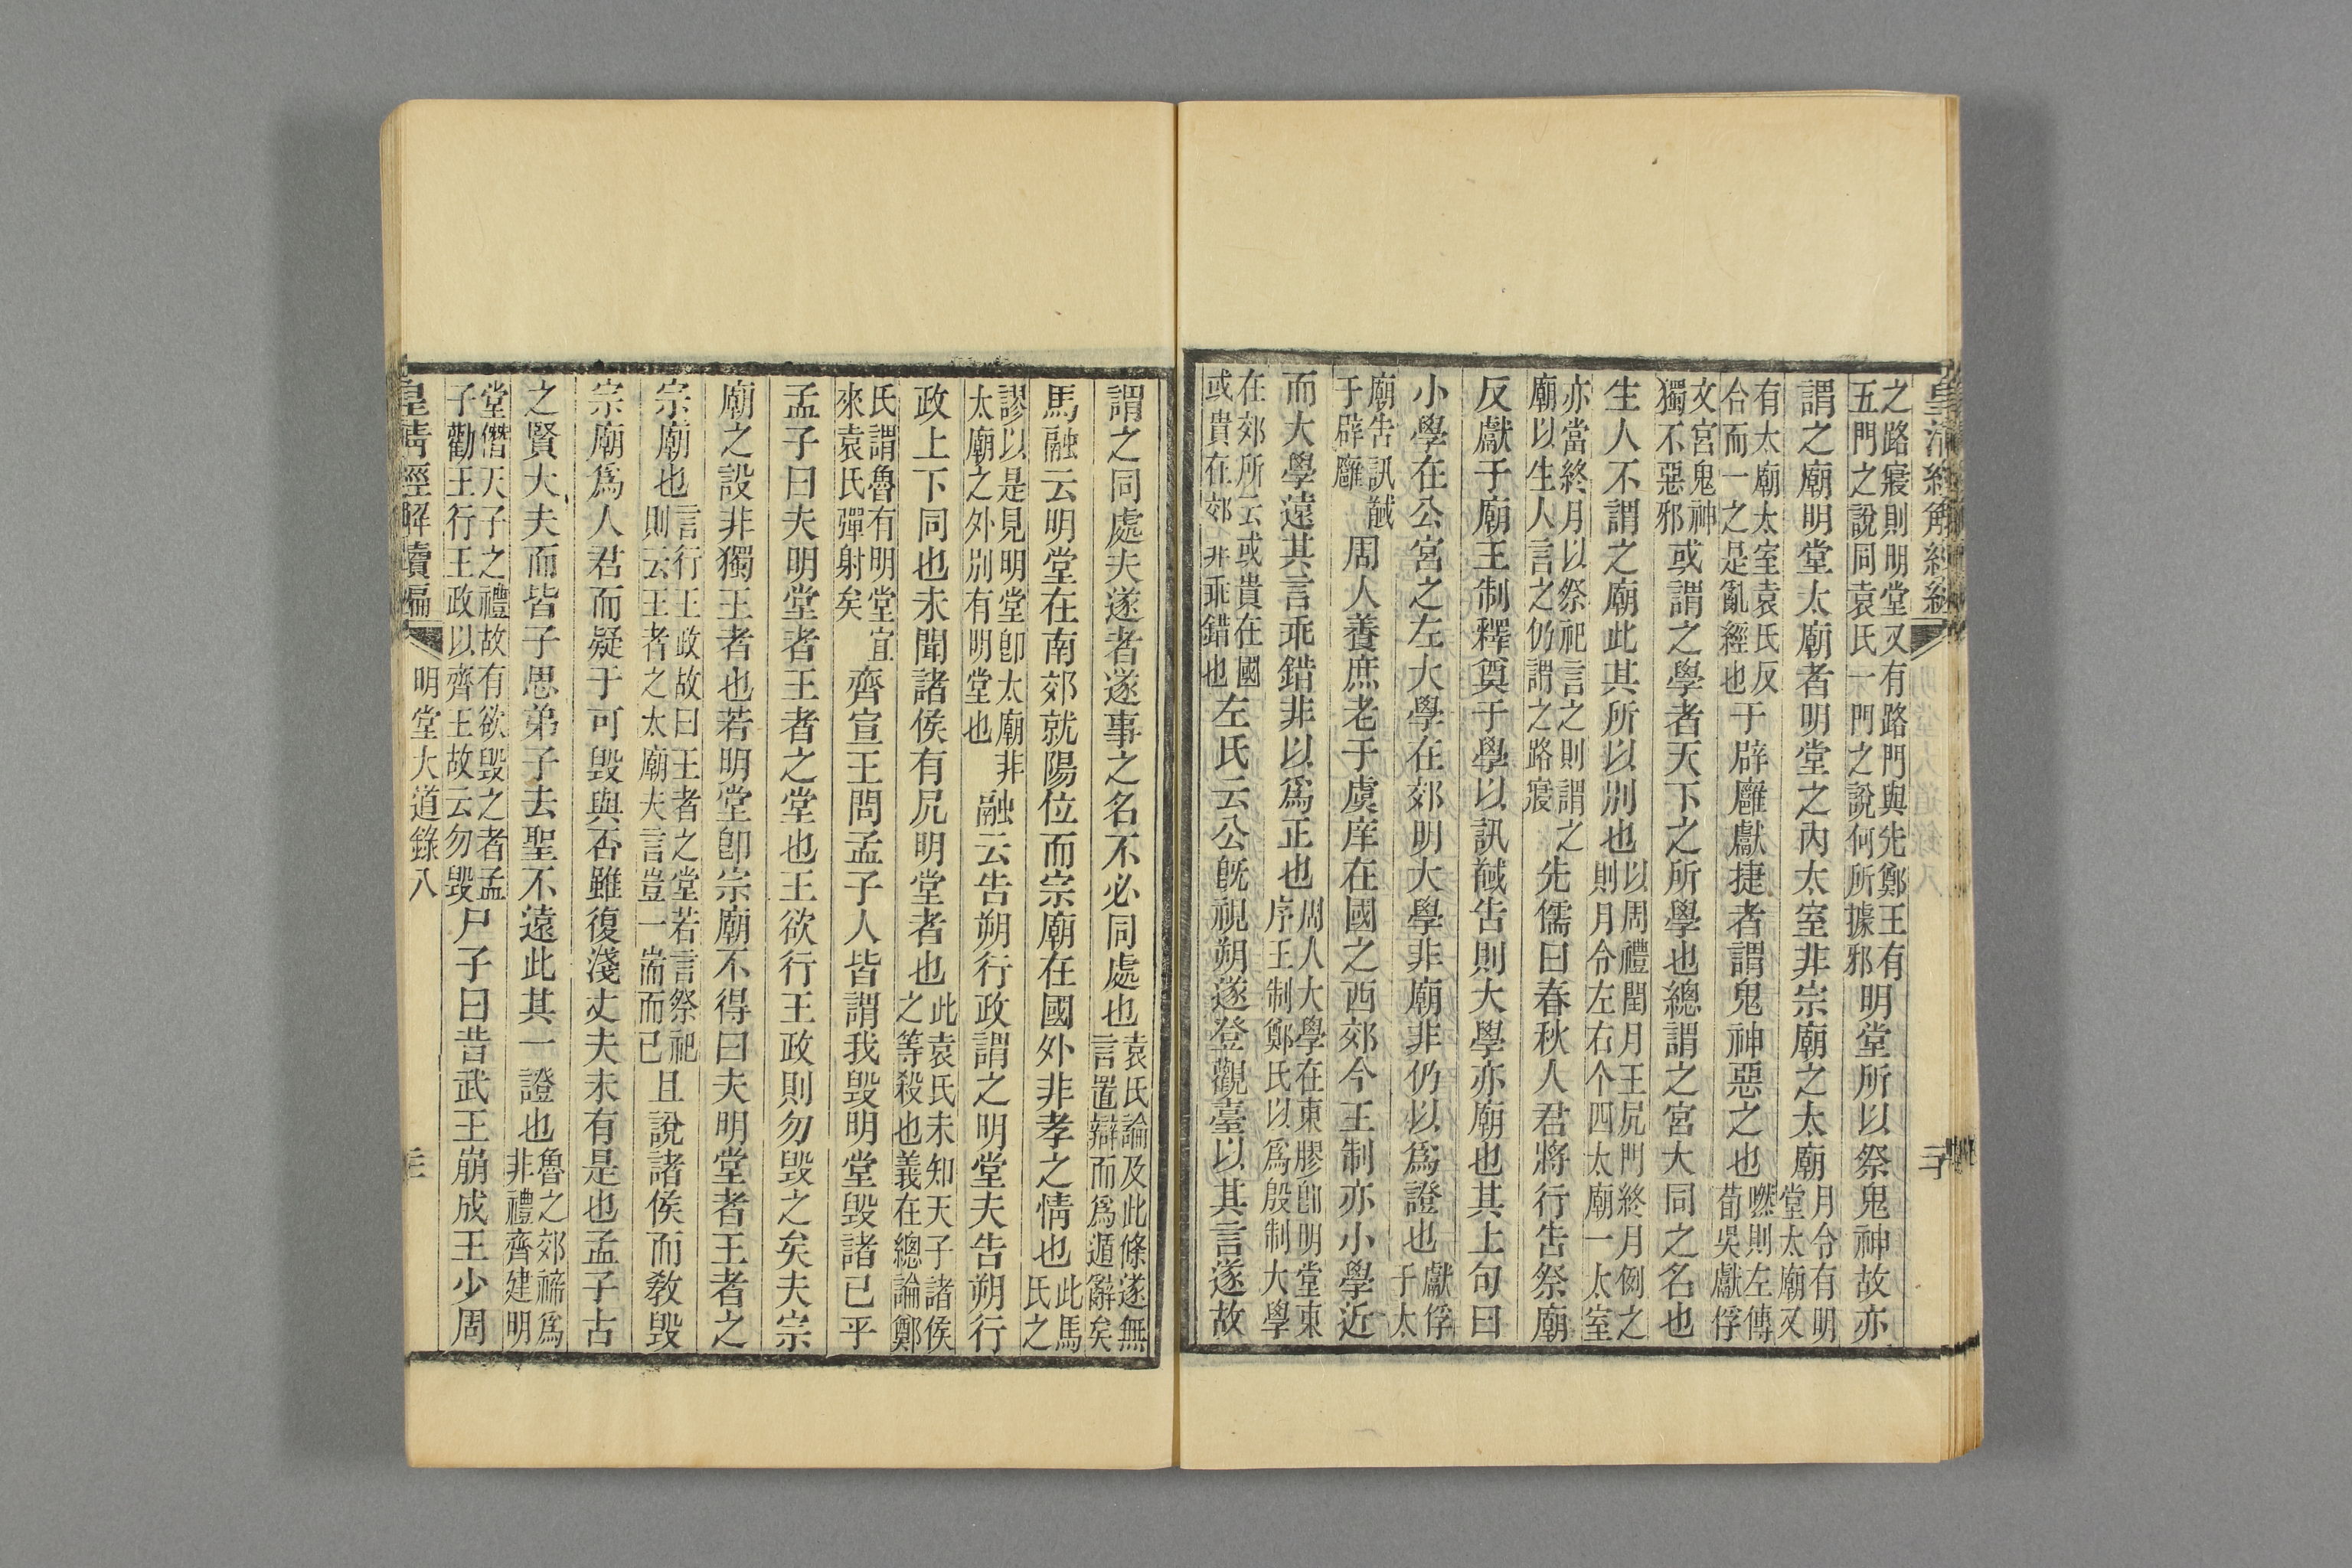 之路寢則明堂又有路門與先鄭王有
五門之說同袁氏一門之說何所據邪
明堂所以祭鬼神故亦
謂之廟明堂太廟者明堂之內太室非宗廟之太廟
月令有明
堂太廟又
有太廟太室袁氏反
合而一之是亂經也
于辟廱獻捷者謂鬼神惡之也
嘫則左傳
荀吳獻俘
文宮鬼神
獨不惡邪
或謂之學者天下之所學也總謂之宮大同之名也
生人不謂之廟此其所以別也
以周禮閏月王凥門終月例之
則月令左右个四太廟一太室
亦當終月以祭祀言之則謂之
廟以生人言之仍謂之路寢
先儒曰春秋人君將行告祭廟
反獻于廟王制釋奠于學以訊馘告則大學亦廟也其上句曰
小學在公宮之左大學在郊明大學非廟非仍以爲證也
獻俘
于太
廟告訊馘
于辟廱
周人養庶老于虞庠在國之西郊今王制亦小學近
而大學遠其言乖錯非以爲正也
周人大學在東膠卽明堂東
序王制鄭氏以爲殷制大學
在郊所云或貴在國
或貴在郊非乖錯也
左氏云公旣視朔遂登觀臺以其言遂故
謂之同處夫遂者遂事之名不必同處也
袁氏論及此條遂無
言置辯而爲遁辭矣
馬融云明堂在南郊就陽位而宗廟在國外非孝之情也
此馬
氏之
謬以是見明堂卽太廟非
太廟之外別有明堂也
融云告朔行政謂之明堂夫告朔行
政上下同也未聞諸侯有凥明堂者也
此袁氏未知天子諸侯
之等殺也義在總論鄭
氏謂魯有明堂宜
來袁氏彈射矣
齊宣王問孟子人皆謂我毀明堂毀諸已乎
孟子曰夫明堂者王者之堂也王欲行王政則勿毀之矣夫宗
廟之設非獨王者也若明堂卽宗廟不得曰夫明堂者王者之
宗廟也
言行王政故曰王者之堂若言祭祀
則云王者之太廟夫言豈一耑而已
且說諸侯而敎毀
宗廟爲人君而疑于可毀與否雖復淺丈夫未有是也孟子古
之賢大夫而皆子思弟子去聖不遠此其一證也
魯之郊禘爲
非禮齊建明
堂僭天子之禮故有欲毀之者孟
子勸王行王政以齊王故云勿毀
尸子曰昔武王崩成王少周
皇清經解續編
明堂大道錄八